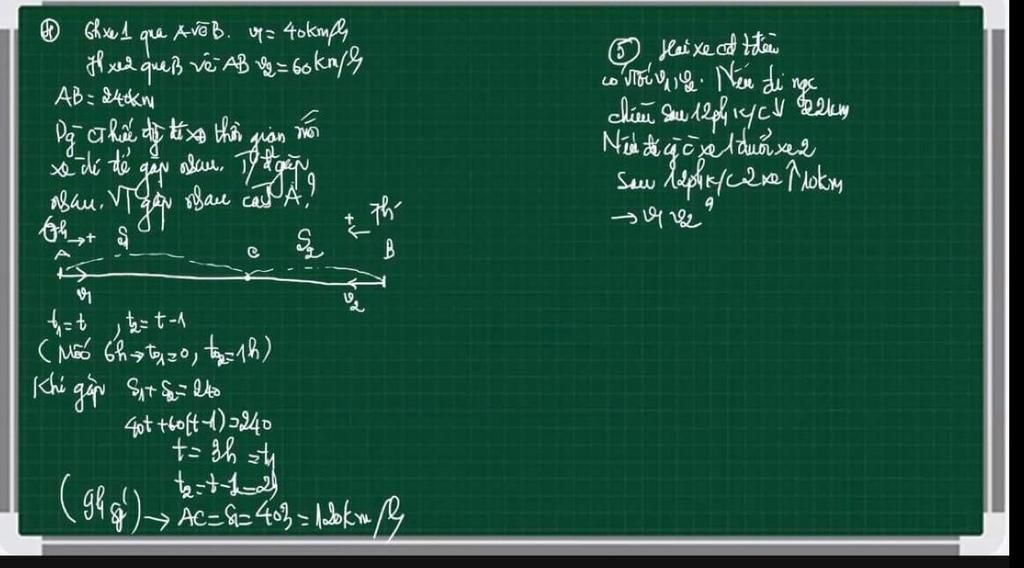 ④ 6h xe 1 qua A về B. v₁ = 40km/h
7h xe 2 qua B về A v₂ = 60km/h
AB = 240km
thời gian mỗi
xe đi để gặp nhau. gặp
nhau. VT gặp nhau cách A?
6h → + S₁ S₂ + ← 7h
A C B
v₁ v₂
t₁ = t , t₂ = t - 1
(Mốc 6h → t₀₁ = 0, t₀₂ = 1h)
Khi gặp S₁ + S₂ = 240
40t + 60(t-1) = 240
t = 3h = t₁
t₂ = t - 1 = 2h
(9h) → AC = S₁ = 40.3 = 120km/h
⑤ Hai xe cđ t đều
có v₁, v₂. Nếu đi ngc
chiều sau 12ph k/c ↓ 22km
Nếu đi xe 1 đuổi xe 2
Sau 12ph k/c 2 xe ↑ 10km
→ v₁ v₂ ?